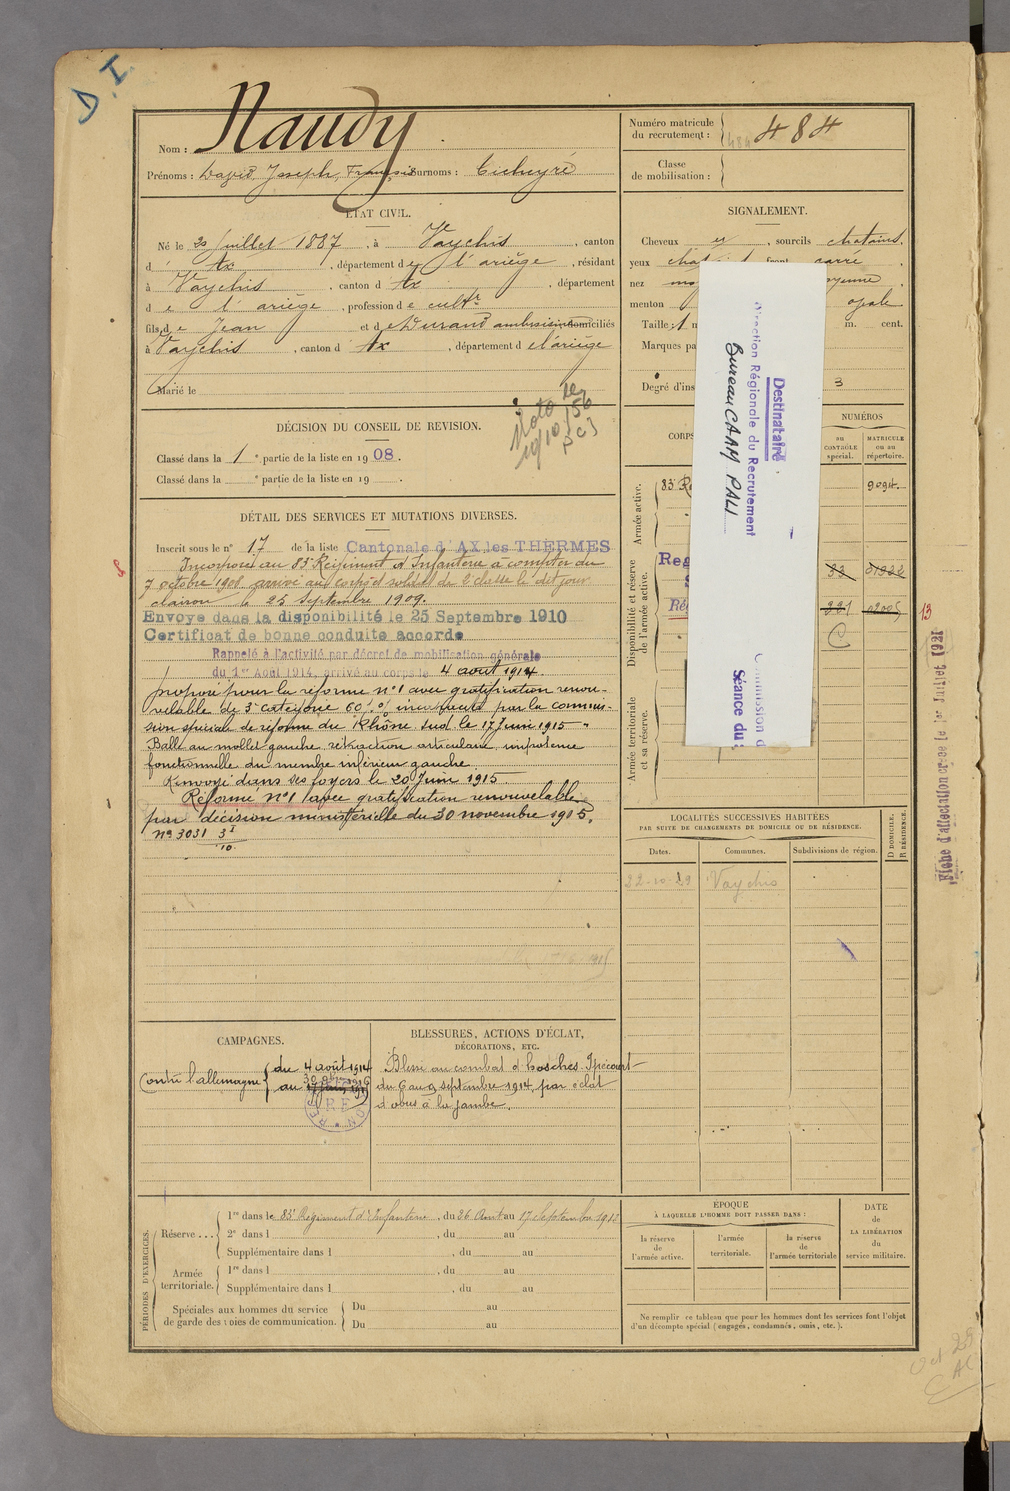 D. I.
Nom : Naudy
Prénoms : David, Joseph, François Surnoms :
Numéro matricule du recrutement : 484
Classe de mobilisation :
ÉTAT CIVIL.
Né le juillet 1887, à Vaychis, canton
d' Ax, département de l'ariège, résidant
à Vaychis, canton d Ax, département
de l'ariège, profession de cultr
fils de Jean et de Durand ambroisine domiciliés
à Vaychis, canton d Ax, département de l'ariège
Marié le
SIGNALEMENT.
Cheveux et, sourcils chatains.
yeux front carré,
nez
menton ovale
Taille : 1 m. cent.
Marques
Degré d'ins 3
Destinataire
Direction Régionale du Recrutement
Bureau CAAM PALI
Séance du :
DÉCISION DU CONSEIL DE REVISION.
Classé dans la 1e partie de la liste en 1908.
Classé dans la e partie de la liste en 19 .
19/10/56
DÉTAIL DES SERVICES ET MUTATIONS DIVERSES.
Inscrit sous le n° 17 de la liste Cantonale d'AX les THERMES
Incorporé au 83e Régiment d'Infanterie à compter du
7 octobre 1908 arrivé au corps et soldat de 2e classe le dit jour
clairon le 25 septembre 1909.
Envoyé dans la disponibilité le 25 Septembre 1910
Certificat de bonne conduite accordé
Rappelé à l'activité par décret de mobilisation générale
du 1er Août 1914, arrivé au corps le 4 août 1914.
proposé pour la réforme n°1 avec gratification renou-
velable de 3e catégorie 60 % par la commis-
sion spéciale de réforme du Rhône sud le 17 Juin 1915 -
Balle au mollet gauche rétraction articulaire impotence
fonctionnelle du membre inférieur gauche.
Renvoyé dans ses foyers le 20 Juin 1915
Réformé n°1 avec gratification renouvelable
par décision ministérielle du 30 novembre 1915.
N° 3031 3 I
10.
CORPS
NUMÉROS
au CONTRÔLE spécial.
MATRICULE ou au répertoire.
Armée active.
83e R
9094.
Disponibilité et réserve de l'armée active.
C
Armée territoriale et sa réserve.
13
Fiche d'affectation créée le 1er Juillet 1921
LOCALITÉS SUCCESSIVES HABITÉES
PAR SUITE DE CHANGEMENTS DE DOMICILE OU DE RÉSIDENCE.
Dates. Communes. Subdivisions de région. D DOMICILE. R RÉSIDENCE.
22-10-29 Vaychis
CAMPAGNES.
Contre l'allemagne du 4 août 1914
au
BLESSURES, ACTIONS D'ÉCLAT,
DÉCORATIONS, ETC.
Blessé au combat d'
du 6 au 9 septembre 1914 par éclat
d'obus à la jambe.
PÉRIODES D'EXERCICES.
Réserve ... 1re dans le 83e Régiment d'Infanterie, du 26 Août au 17 Septembre 1913
2e dans l , du au
Supplémentaire dans l , du au
Armée territoriale. 1re dans l , du au
Supplémentaire dans l , du au
Spéciales aux hommes du service de garde des voies de communication. Du au
Du au
EPOQUE
À LAQUELLE L'HOMME DOIT PASSER DANS :
la réserve de l'armée active.
l'armée territoriale.
la réserve de l'armée territoriale
DATE de LA LIBÉRATION du service militaire.
Ne remplir ce tableau que pour les hommes dont les services font l'objet
d'un décompte spécial (engagés, condamnés, omis, etc.).